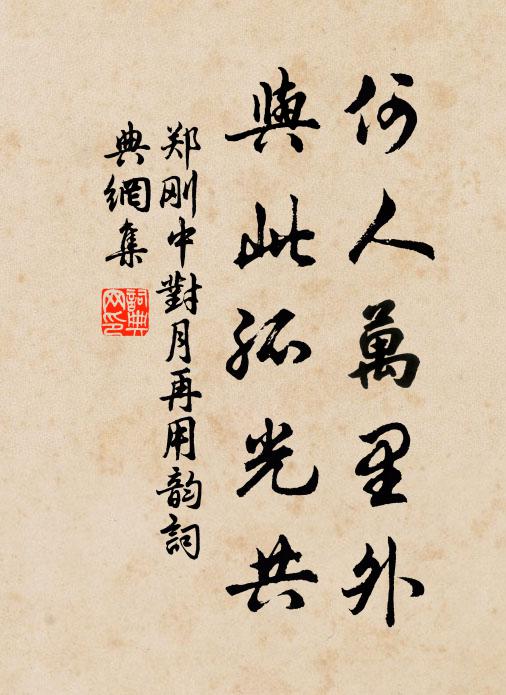 何人萬里外
與此孤光共
郑刚中對月再用韵詞
典網集
詞典
网印